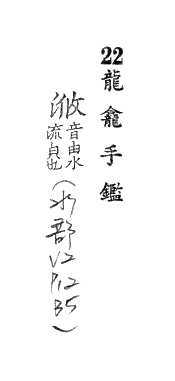 22龍龕手鑑
浟
音由水
流貞也
(水部V2P12B5)